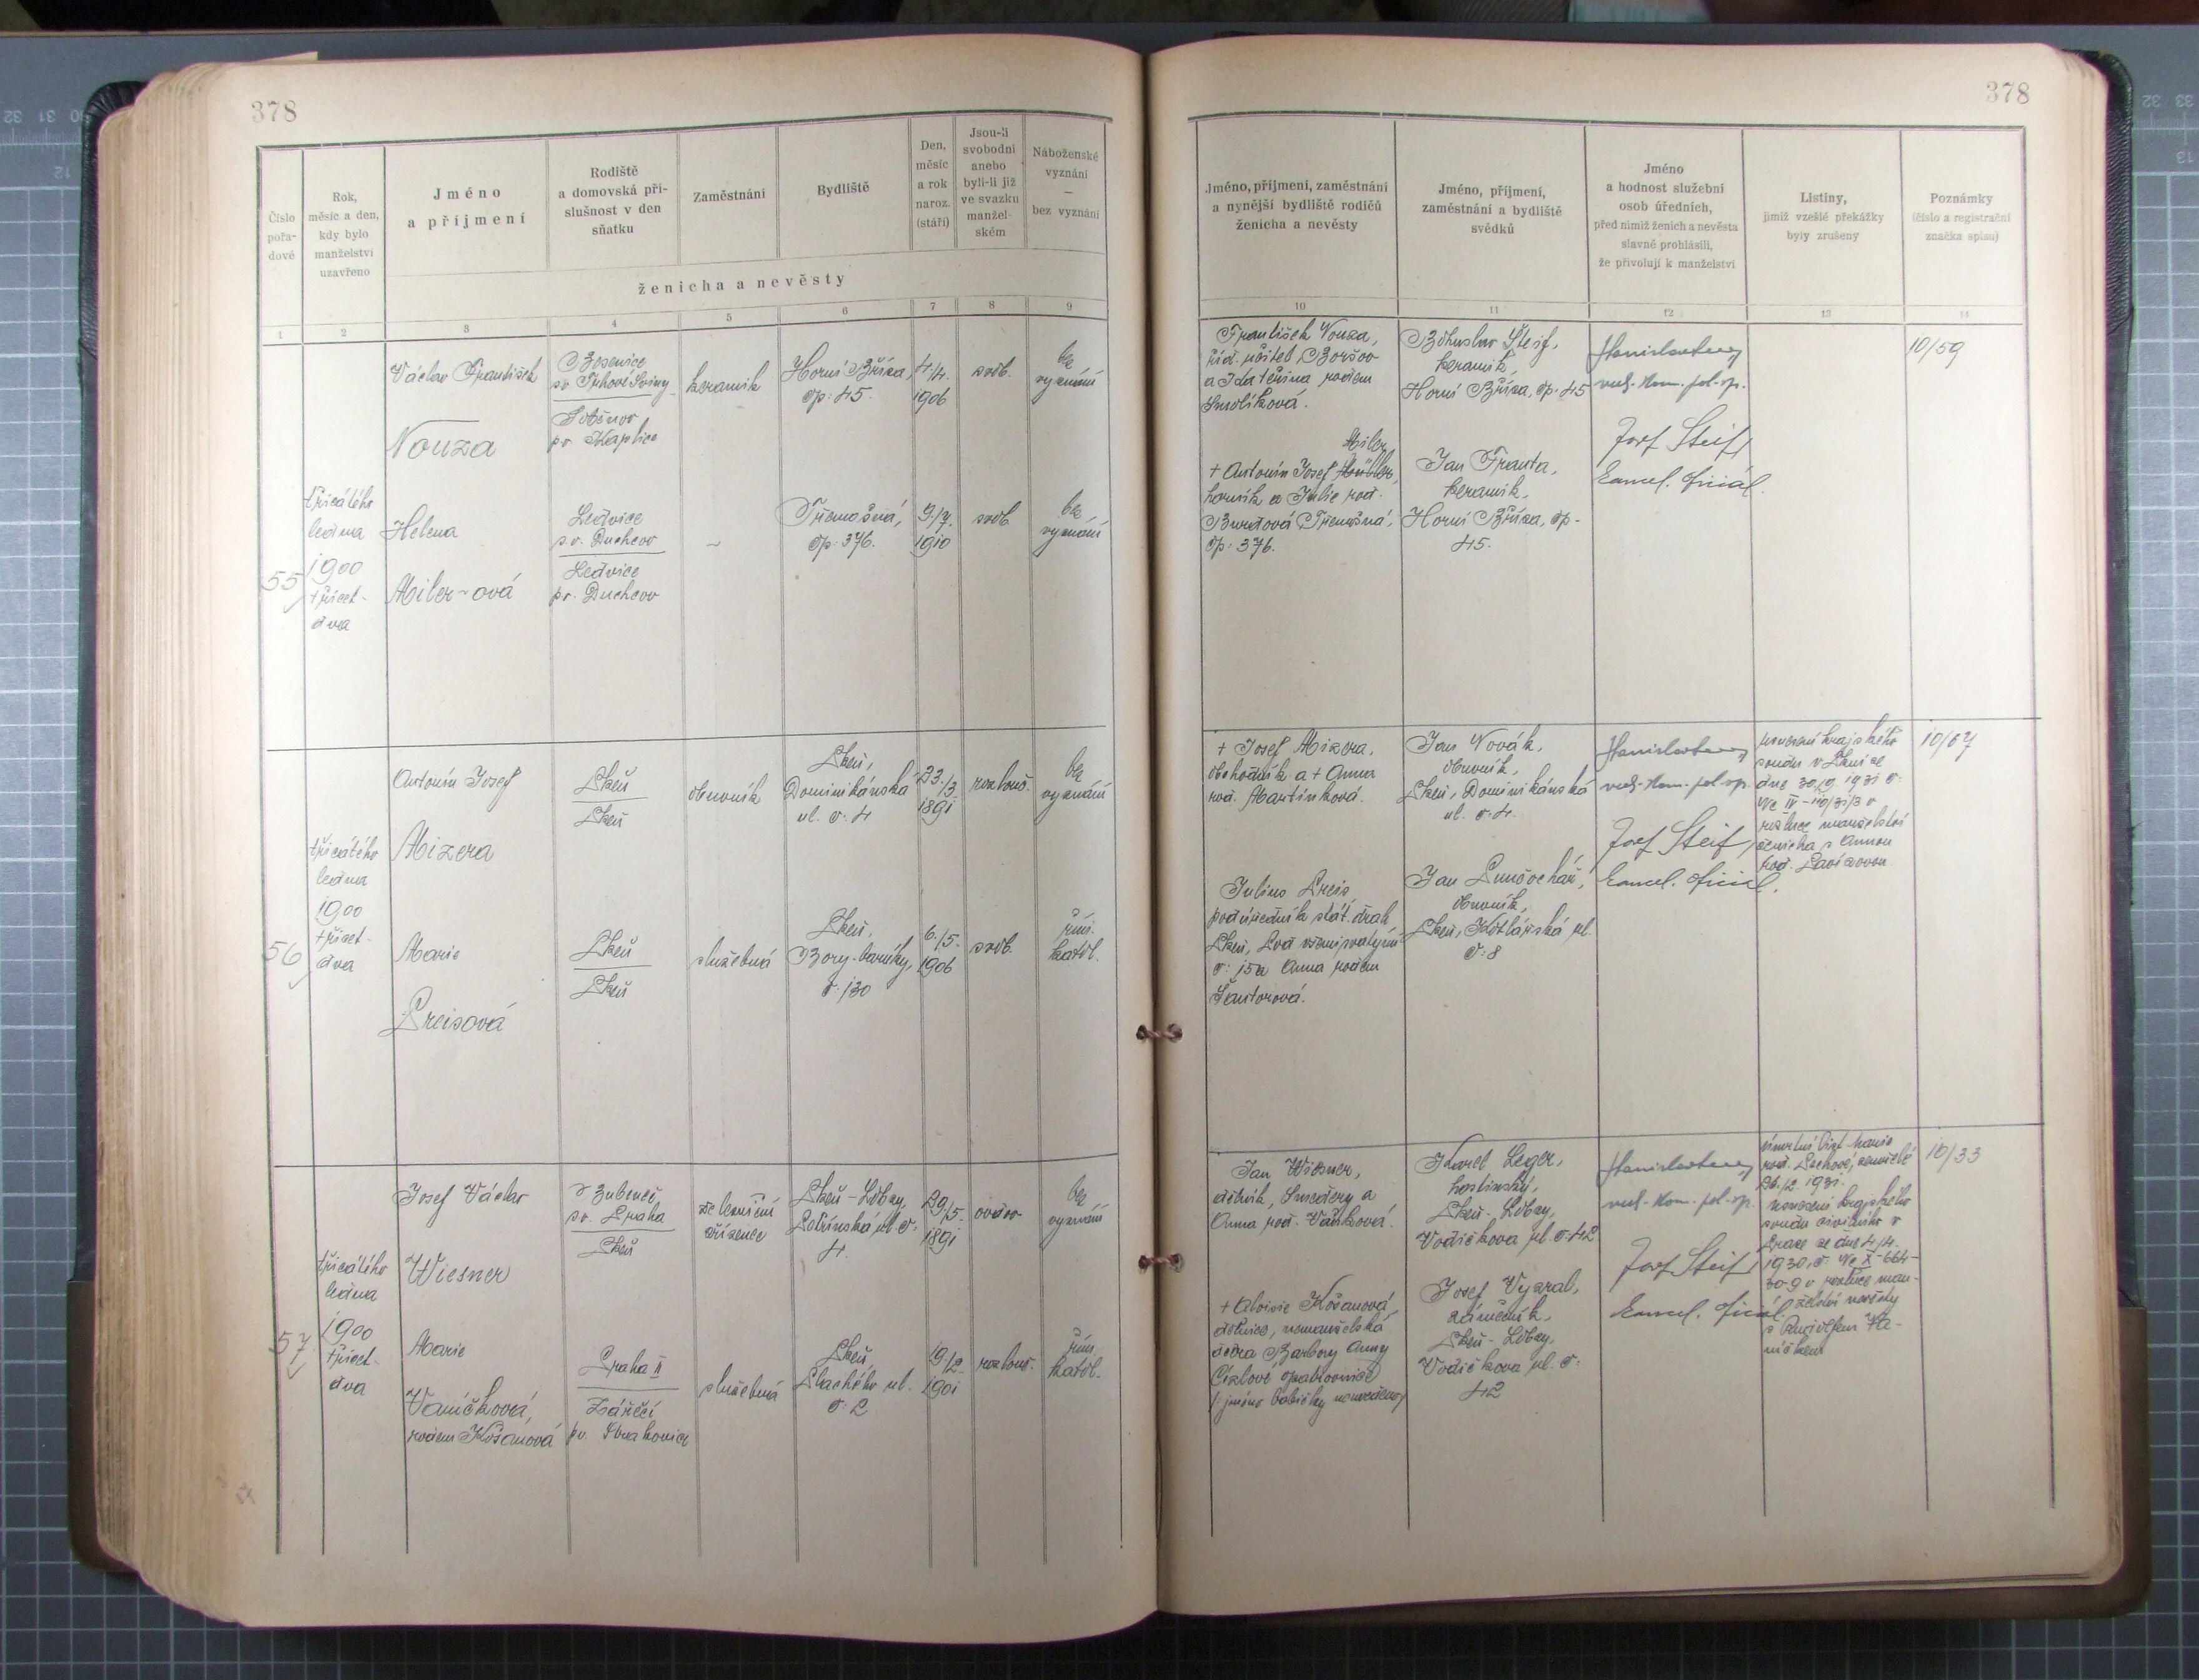 378
Číslo
pořa-
dové
Rok,
měsíc a den,
kdy bylo
manželství
uzavřeno
Jméno
a příjmení
Rodiště
a domovská pří-
slušnost v den
sňatku
Zaměstnání
Bydliště
Den,
měsíc
a rok
naroz.
(stáří)
Jsou-li
svobodni
anebo
byli-li již
ve svazku
manžel-
ském
Náboženské
vyznání
—
bez vyznání
ženicha a nevěsty
1 2 3 4 5 6 7 8 9
55
třicátého
ledna
1900
třicet-
dva
Václav František
Nouza
pr. Kaplice
keramik
Horní Bříza,
čp. 45.
4./4.
1906
svob.
bez
vyznání
Helena
Miler-ová
Ledvice
s.o. Duchcov
Ledvice
p.o. Duchcov
~
Třemošná,
čp. 376.
9./7.
1910
svob.
bez
vyznání
56
třicátého
ledna
1900
třicet-
dva
Antonín Josef
Mizera
Plzeň
Plzeň
obuvník
Plzeň,
Dominikánská
ul. č. 4
23./3.
1891
rozlouč.
bez
vyznání
Marie
Preisová
Plzeň
Plzeň
služebná
Plzeň,
Bory-baráky,
č. 130
6./5.
1906
svob.
řím.
katol.
57
třicátého
ledna
1900
třicet-
dva
Josef Václav
Wiesner
v Bubenči,
so. Praha
Plzeň
železniční
zřízenec
Plzeň-Lobzy,
Petřínská ul. č.
4.
29./5.
1891
vdov.
bez
vyznání
Marie
Vaníčková,
rodem Košanová
Praha II
Záříčí
služebná
Plzeň,
Plachého ul.
č. 2
19/2.
1901
rozlouč.
řím.
katol.
378
Jméno, příjmení, zaměstnání
a nynější bydliště rodičů
ženicha a nevěsty
Jméno, příjmení,
zaměstnání a bydliště
svědků
Jméno
a hodnost služební
osob úředních,
před nimiž ženich a nevěsta
slavně prohlásili,
že přivolují k manželství
Listiny,
jimiž vzešlé překážky
byly zrušeny
Poznámky
(číslo a registrační
značka spisu)
10 11 12 13 14
František Nouza,
říd. učitel, Boršov
a Kateřina rodem
Smolíková.
Miler,
+ Antonín Josef
horník a Julie roz.
Burdová Třemošná,
čp. 376.
Bohuslav Šteif,
keramik,
Horní Bříza, čp. 45
Jan Franta,
keramik,
Horní Bříza, čp.
45.
Josef Steif,
kancel. oficiál.
10/59
+ Josef Mizera,
obchodník a + Anna
roz. Martínková.
Julius Preis,
podúředník stát. drah
Plzeň, Pod všemi svatými
č. 15 a Anna rodem
Šantorová.
Jan Novák,
obuvník,
Plzeň, Dominikánská
ul. č. 4.
Jan Punčochář,
obuvník,
Plzeň, Kotlářská ul.
č. 8
Josef Steif,
kancel. oficiál.
usnesení krajského
soudu v Plzni ze
dne 30./9. 1931 č.
o
rozluce manželství
ženicha s Annou
10/67
Jan Wiesner,
dělník, Smečery a
Anna roz. Vaňková.
+ Aloisie Košanová,
dělnice, nemanželská
dcera Barbory Anny
(jméno babičky neuvedeno)
Karel Leger,
hostinský,
Plzeň-Lobzy,
Vodičkova ul. č. 42
Josef Vyzral,
zámečník,
Plzeň-Lobzy,
Vodičkova ul. č.
42
Josef Steif,
kancel. oficiál.
úmrtní list Marie
26./12. 1931.
usnesení krajského
soudu civilního v
Praze ze dne 4./4.
1930, č.
o rozluce man-
želství nevěsty
s Rudolfem Va-
níčkem
10/33